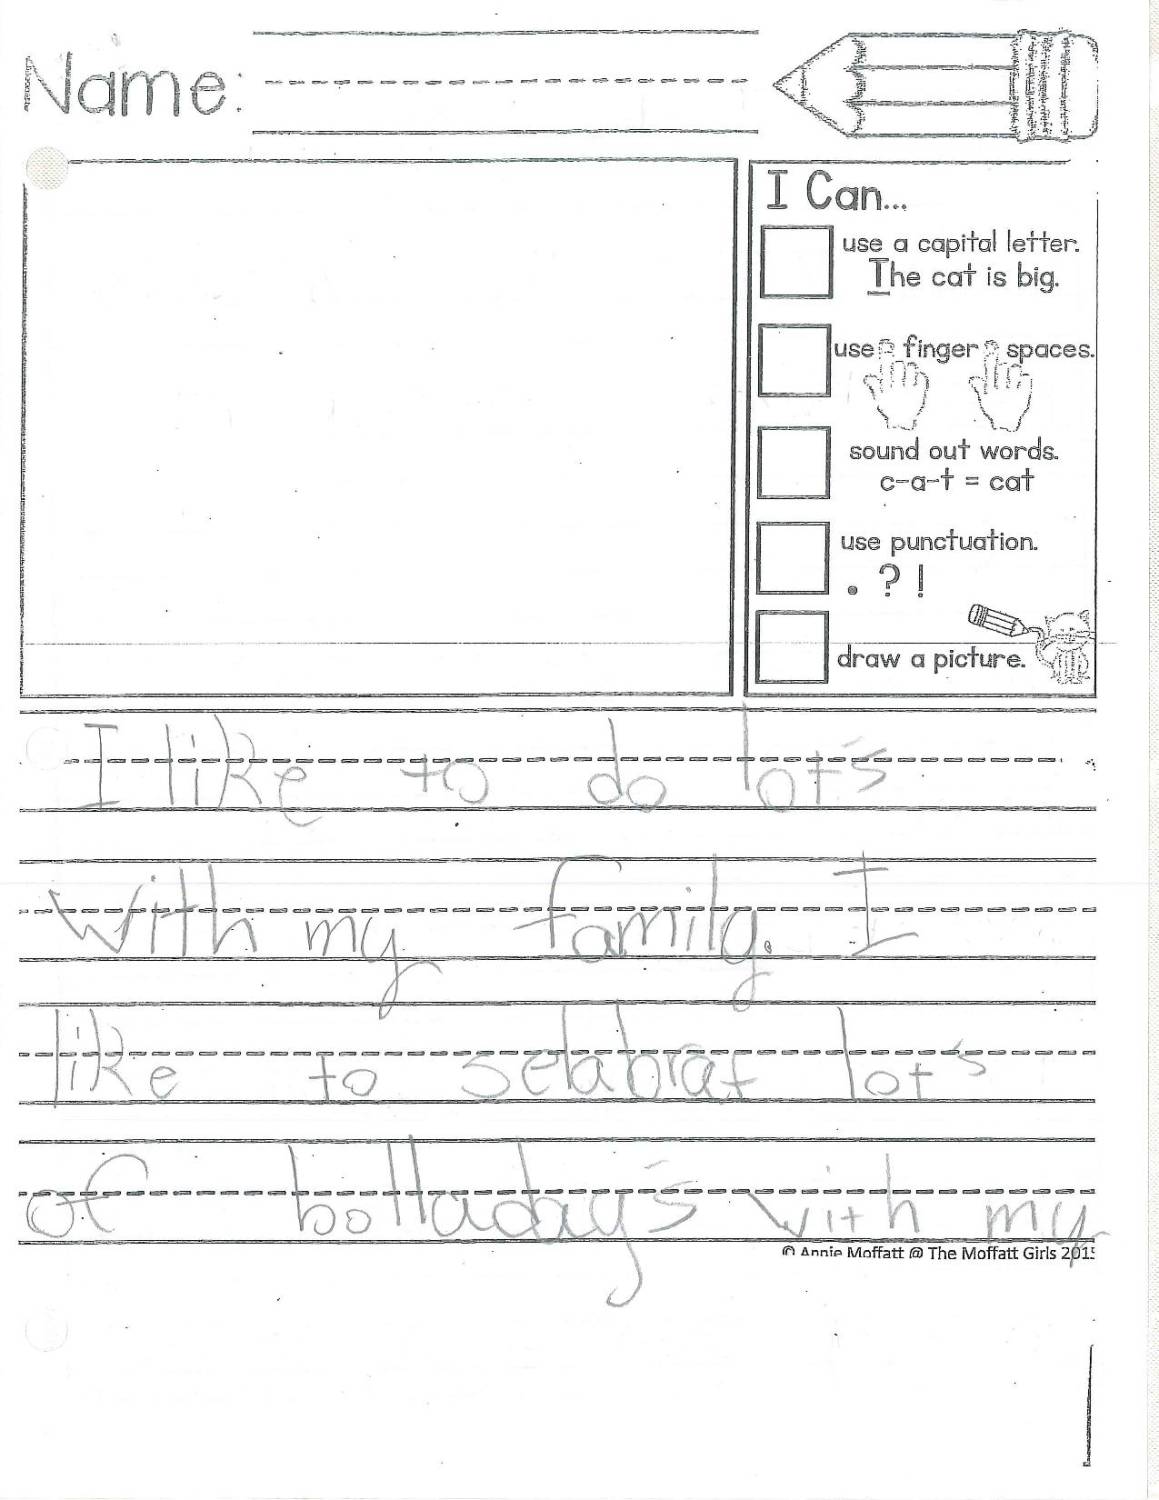 Name:
I Can...
use a capital letter.
The cat is big.
use finger spaces.
sound out words.
c-a-t = cat
use punctuation.
. ? !
draw a picture.
I like to do lot's
with my family. I
like to selabrat lot's
of holladay's with my
© Annie Moffatt @ The Moffatt Girls 2015